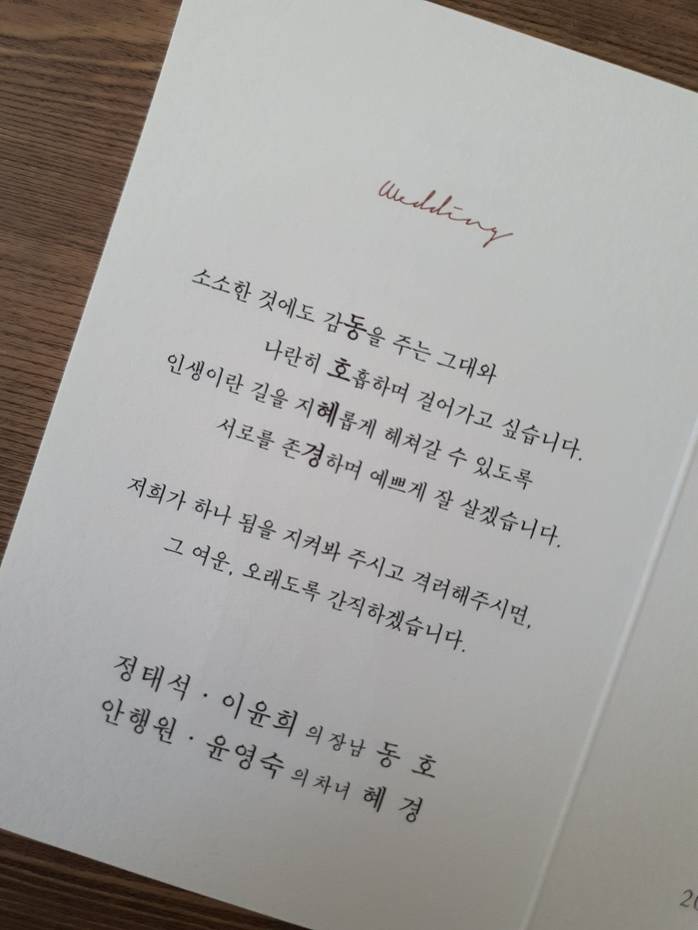 wedding
소소한 것에도 감동을 주는 그대와
나란히 호흡하며 걸어가고 싶습니다.
인생이란 길을 지혜롭게 헤쳐갈 수 있도록
서로를 존경하며 예쁘게 잘 살겠습니다.
저희가 하나 됨을 지켜봐 주시고 격려해주시면,
그 여운, 오래도록 간직하겠습니다.
정태석 · 이윤희 의 장남 동 호
안행원 · 윤영숙 의 차녀 혜 경